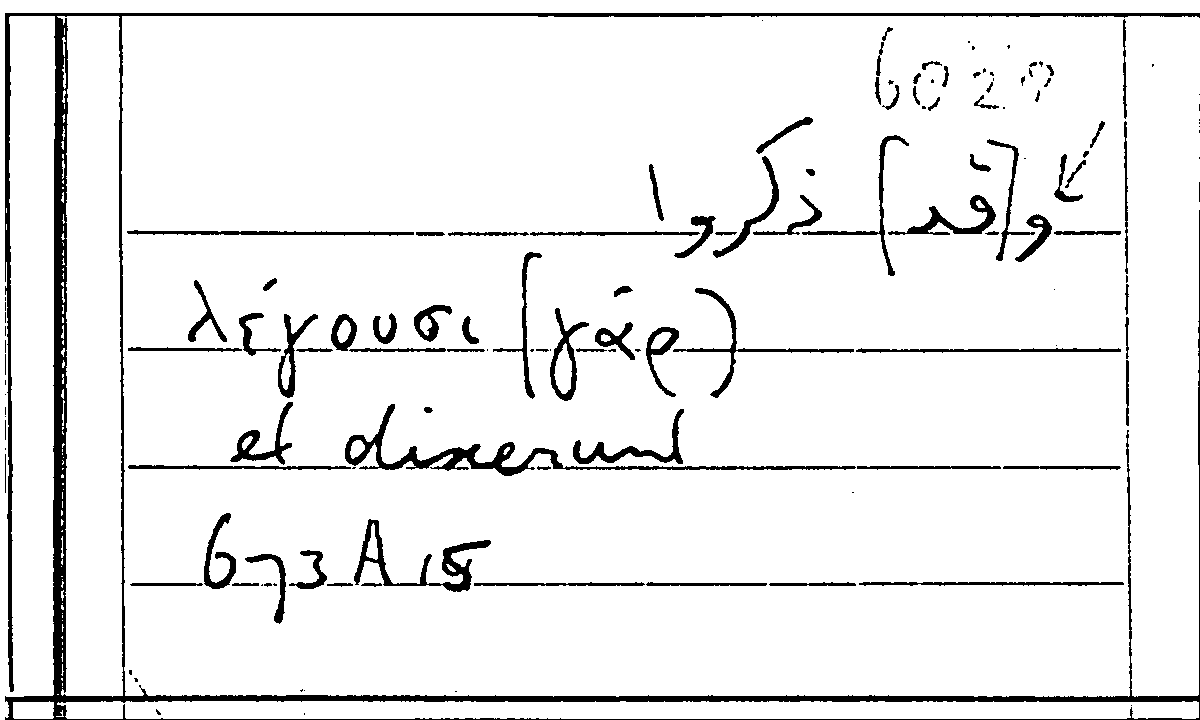 6029
و[قد] ذكروا
λέγουσι (γάρ)
et dixerunt
673 A 15